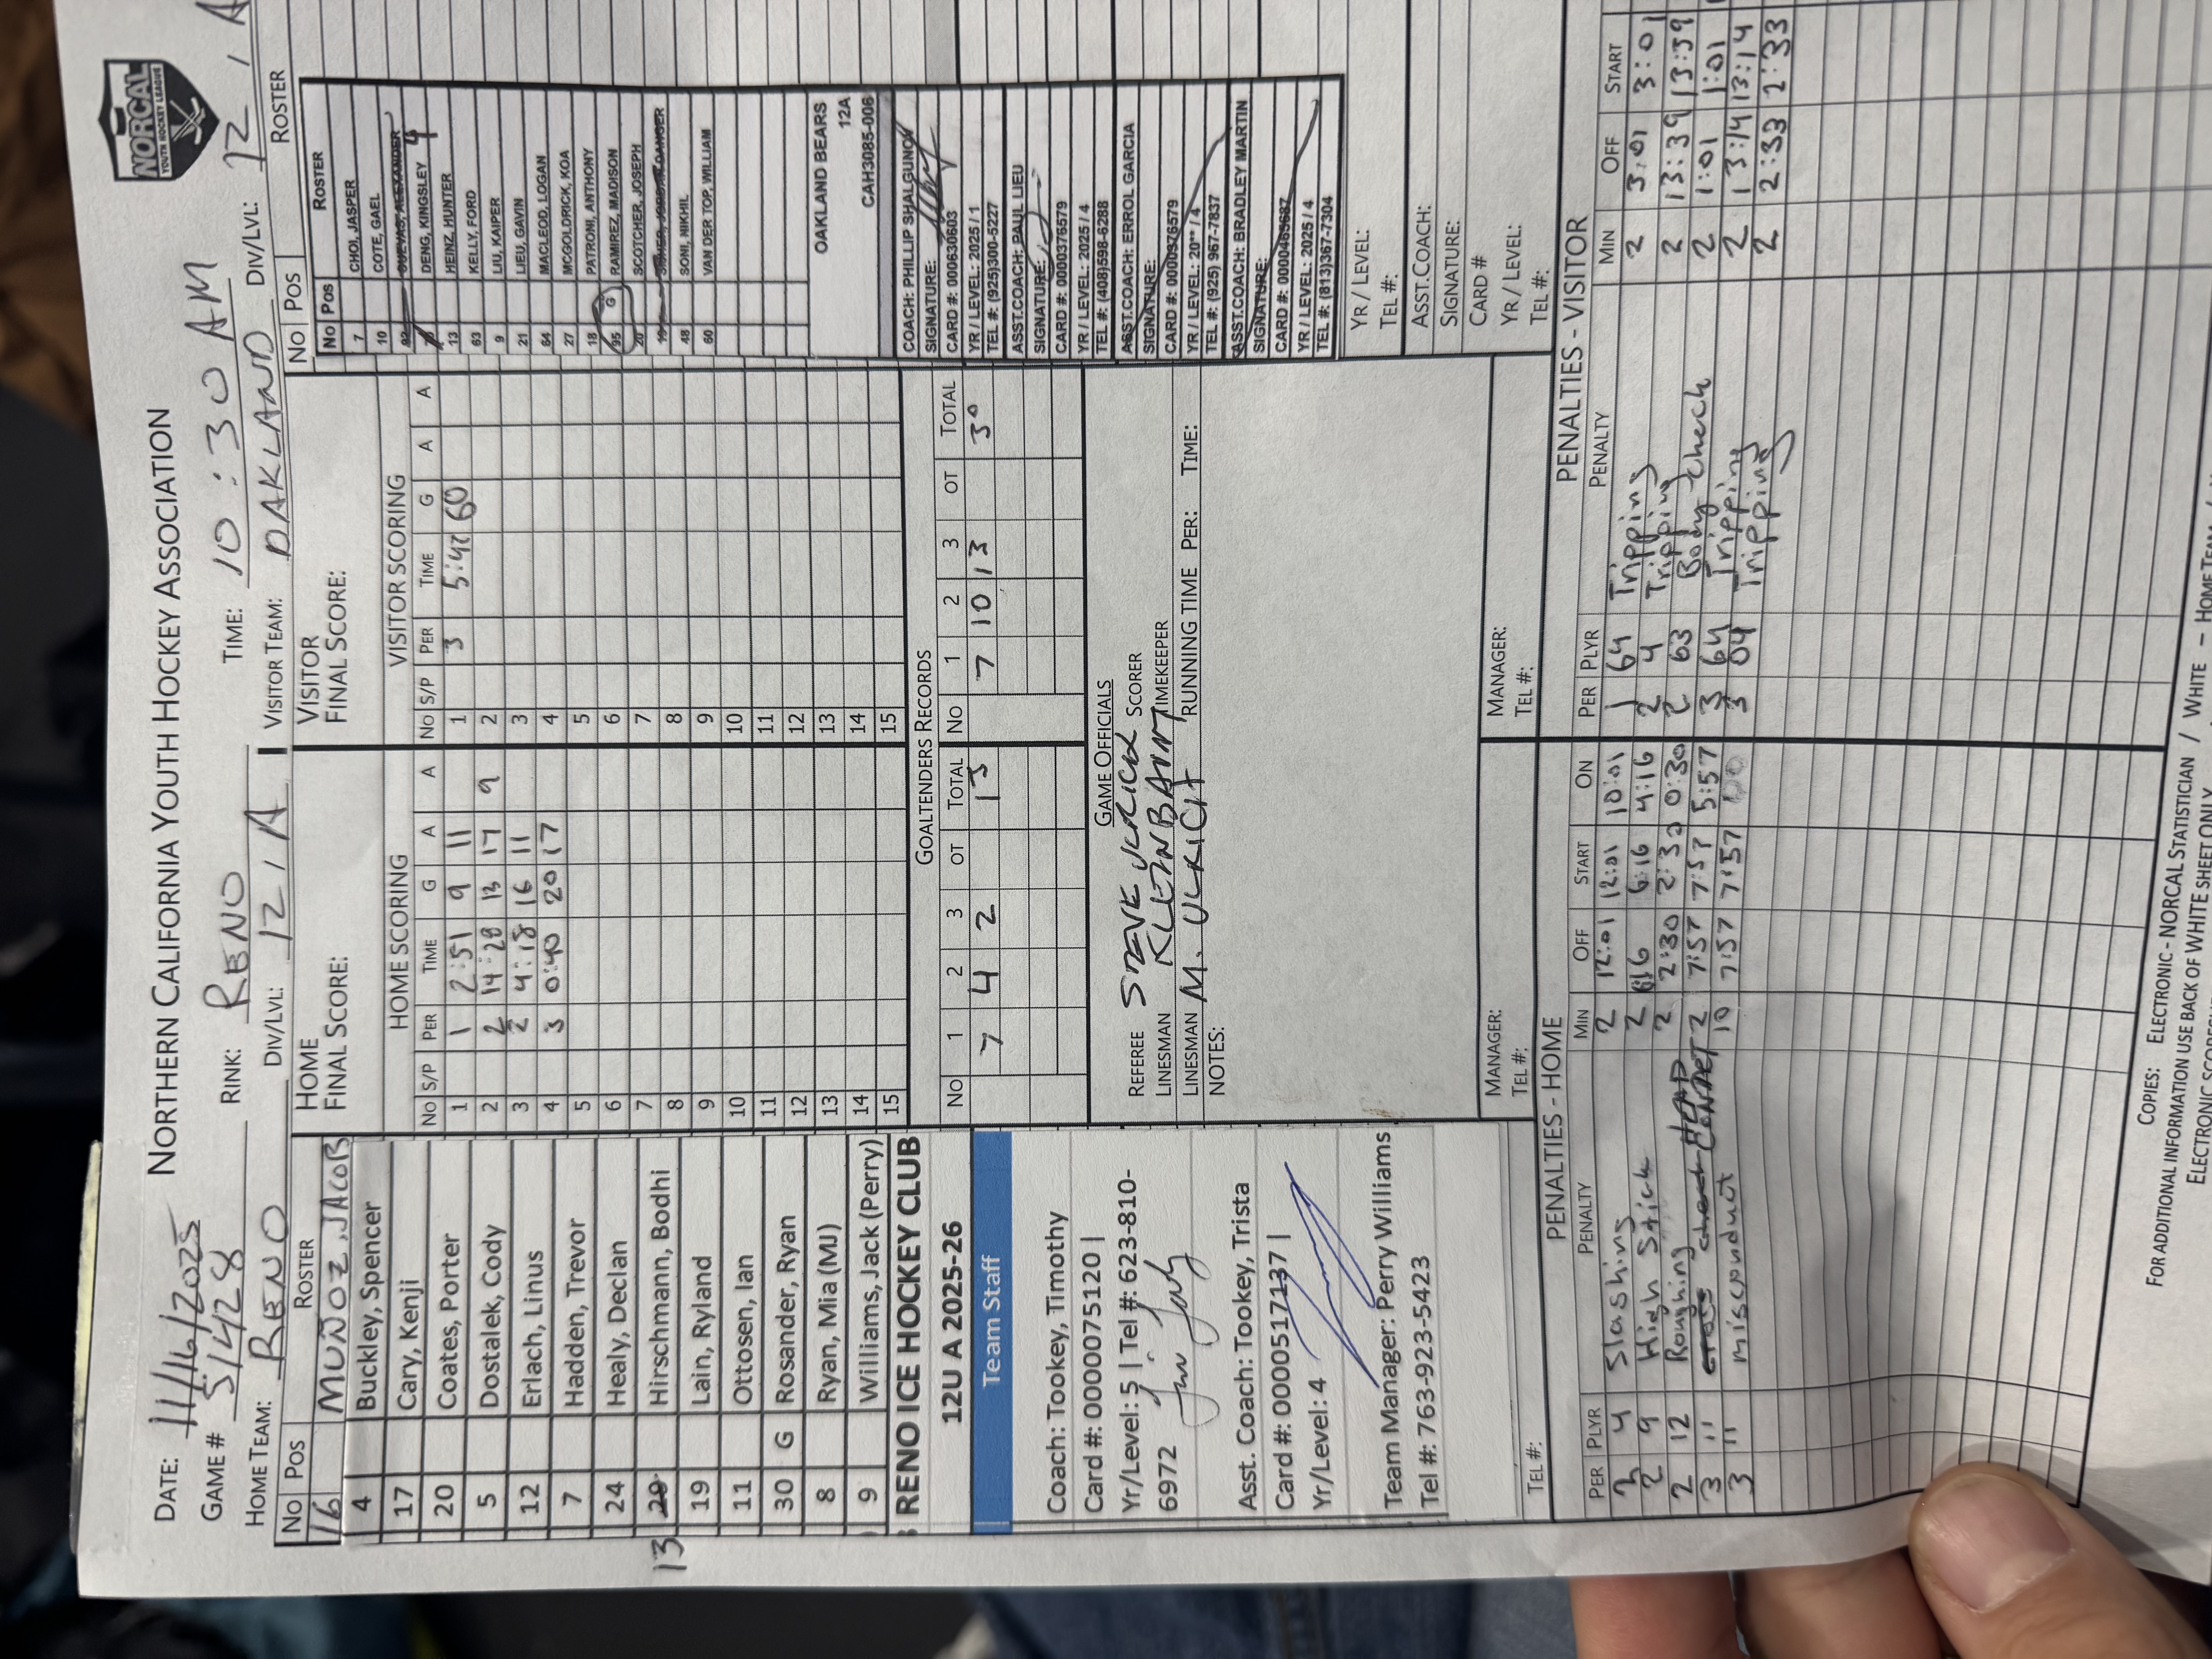 NORCAL
YOUTH HOCKEY LEAGUE
NORTHERN CALIFORNIA YOUTH HOCKEY ASSOCIATION
DATE: 11/16/2025
GAME # 51428 RINK: RENO TIME: 10:30 AM
HOME TEAM: RENO DIV/LVL: 12 / A VISITOR TEAM: OAKLAND DIV/LVL: 12 / A
No Pos ROSTER
16 MUÑOZ, JACOB
4 Buckley, Spencer
17 Cary, Kenji
20 Coates, Porter
5 Dostalek, Cody
12 Erlach, Linus
7 Hadden, Trevor
24 Healy, Declan
13 29 Hirschmann, Bodhi
19 Lain, Ryland
11 Ottosen, Ian
30 G Rosander, Ryan
8 Ryan, Mia (MJ)
9 Williams, Jack (Perry)
RENO ICE HOCKEY CLUB
12U A 2025-26
Team Staff
Coach: Tookey, Timothy
Card #: 0000075120 |
Yr/Level: 5 | Tel #: 623-810-
6972
Asst. Coach: Tookey, Trista
Card #: 0000517137 |
Yr/Level: 4
Team Manager: Perry Williams
Tel #: 763-923-5423
TEL #:
HOME
FINAL SCORE:
HOME SCORING
No S/P PER TIME G A A
1 1 2:51 9 11
2 2 14:28 13 17 9
3 2 4:18 16 11
4 3 0:40 20 17
5
6
7
8
9
10
11
12
13
14
15
VISITOR
FINAL SCORE:
VISITOR SCORING
No S/P PER TIME G A A
1 3 5:42 60
2
3
4
5
6
7
8
9
10
11
12
13
14
15
GOALTENDERS RECORDS
No 1 2 3 OT TOTAL No 1 2 3 OT TOTAL
7 4 2 13 7 10 13 30
GAME OFFICIALS
REFEREE STEVE SCORER
LINESMAN KLEINBAUM TIMEKEEPER
LINESMAN M. ULRICH RUNNING TIME PER: TIME:
NOTES:
MANAGER:
TEL #:
MANAGER:
TEL #:
No Pos ROSTER
No Pos ROSTER
7 CHOI, JASPER
10 COTE, GAEL
92 CUEVAS, ALEXANDER
DENG, KINGSLEY 4
13 HEINZ, HUNTER
63 KELLY, FORD
9 LIU, KAIPER
21 LIEU, GAVIN
64 MACLEOD, LOGAN
27 MCGOLDRICK, KOA
18 PATRONI, ANTHONY
95 G RAMIREZ, MADISON
20 SCOTCHER, JOSEPH
48 SONI, NIKHIL
60 VAN DER TOP, WILLIAM
OAKLAND BEARS
12A
CAH3085-006
COACH: PHILLIP SHALGUNOV
SIGNATURE:
CARD #: 000630603
YR / LEVEL: 2025 / 1
TEL #: (925)300-5227
ASST.COACH: PAUL LIEU
SIGNATURE:
CARD #: 0000376579
YR / LEVEL: 2025 / 4
TEL #: (408)598-6288
ASST.COACH: ERROL GARCIA
SIGNATURE:
CARD #: 0000376579
YR / LEVEL: 20** / 4
TEL #: (925) 967-7837
ASST.COACH: BRADLEY MARTIN
SIGNATURE:
CARD #:
YR / LEVEL: 2025 / 4
TEL #: (813)367-7304
YR / LEVEL:
TEL #:
ASST.COACH:
SIGNATURE:
CARD #
YR / LEVEL:
TEL #:
PENALTIES - HOME
PER PLYR PENALTY MIN OFF START ON
2 4 Slashing 2 12:01 12:01 10:01
2 9 High Stick 2 6:16 6:16 4:16
2 12 Roughing 2 2:30 2:30 0:30
3 11 cross check HEAD CONTACT 2 7:57 7:57 5:57
3 11 misconduct 10 7:57 7:57
PENALTIES - VISITOR
PER PLYR PENALTY MIN OFF START
1 64 Tripping 2 3:01 3:01
2 4 Tripping 2 13:39 13:39
2 63 Body check 2 1:01 1:01
3 64 Tripping 2 13:14 13:14
3 04 Tripping 2 2:33 2:33
COPIES: ELECTRONIC - NORCAL STATISTICIAN / WHITE - HOME TEAM
FOR ADDITIONAL INFORMATION USE BACK OF WHITE SHEET ONLY